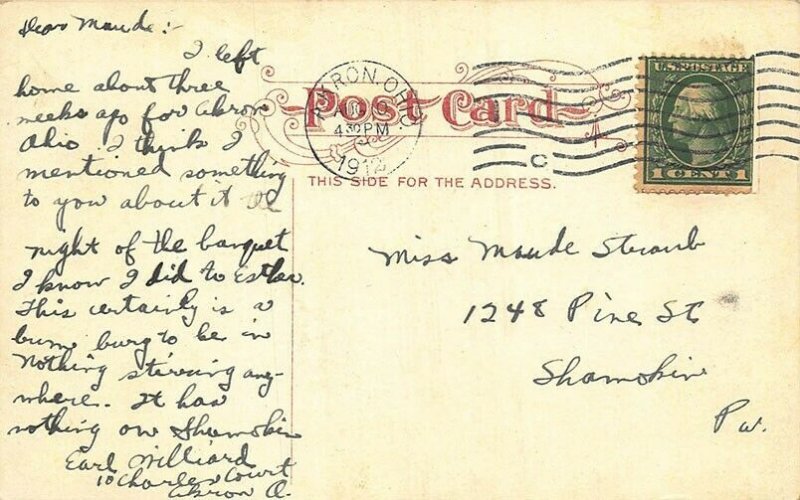 Dear Maude:-
I left
home about three
weeks ago for Akron
Ohio. I think I
mentioned something
to you about it
night of the banquet
I know I did to Esther.
This certainly is a
bum burg to be in
Nothing stirring any-
where. It has
nothing on Shamokin
Earl Williard
10 Charles Court
Akron O.
AKRON, OHIO
4 30 PM
1912
C
Post Card
THIS SIDE FOR THE ADDRESS.
U.S. POSTAGE
1 CENT 1
Miss Maude Straub
1248 Pine St
Shamokin
Pa.